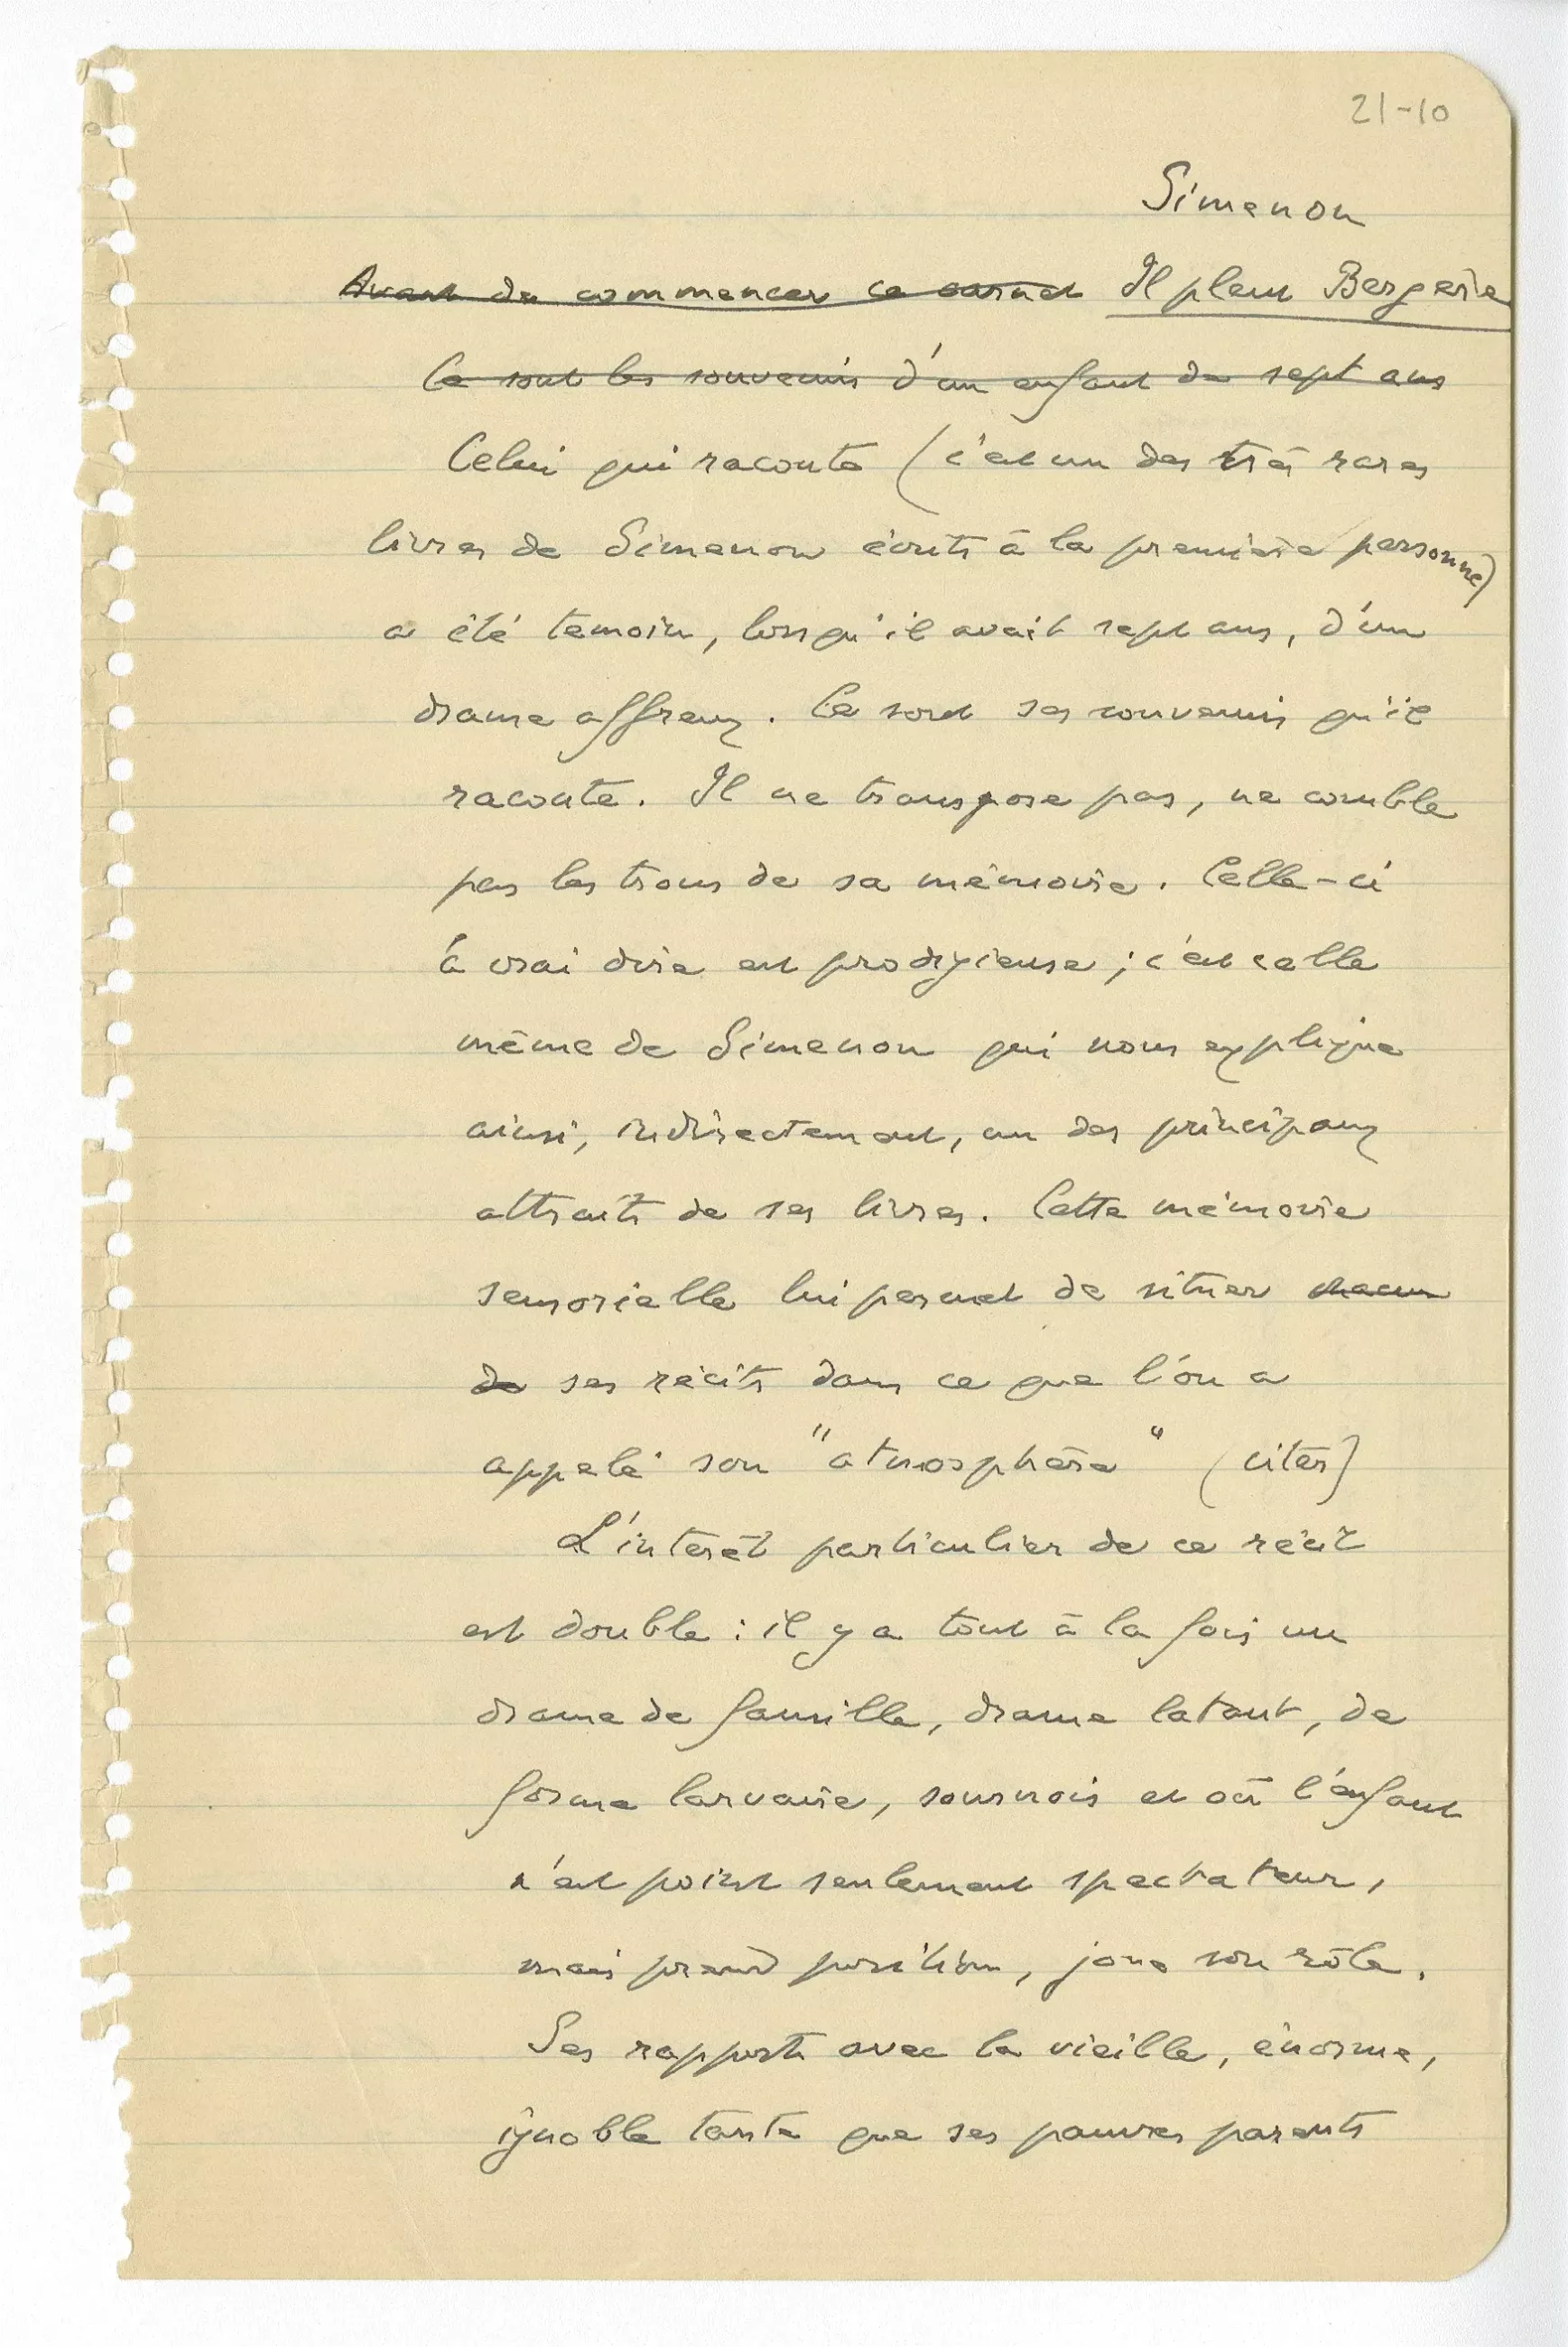 21-10
Simenon
Avant de commencer ce carnet Il pleut Bergère
Ce sont les souvenirs d'un enfant de sept ans
Celui qui raconte (c'est un des très rares
livres de Simenon écrits à la première personne)
a été temoin, lorsqu'il avait sept ans, d'un
drame affreux. Ce sont ses souvenirs qu'il
raconte. Il ne transpose pas, ne comble
pas les trous de sa mémoire. Celle-ci
à vrai dire est prodigieuse ; c'est celle
même de Simenon qui nous explique
ainsi, indirectement, un des principaux
attraits de ses livres. Cette mémoire
sensorielle lui permet de situer chacun
de ses récits dans ce que l'on a
appelé son "atmosphère" (citer)
L'intérêt particulier de ce récit
est double : il y a tout à la fois un
drame de famille, drame latent, de
forme larvaire, sournois et où l'enfant
n'est point seulement spectateur,
mais prend position, joue son rôle.
Ses rapports avec la vieille, énorme,
ignoble tante que ses pauvres parents